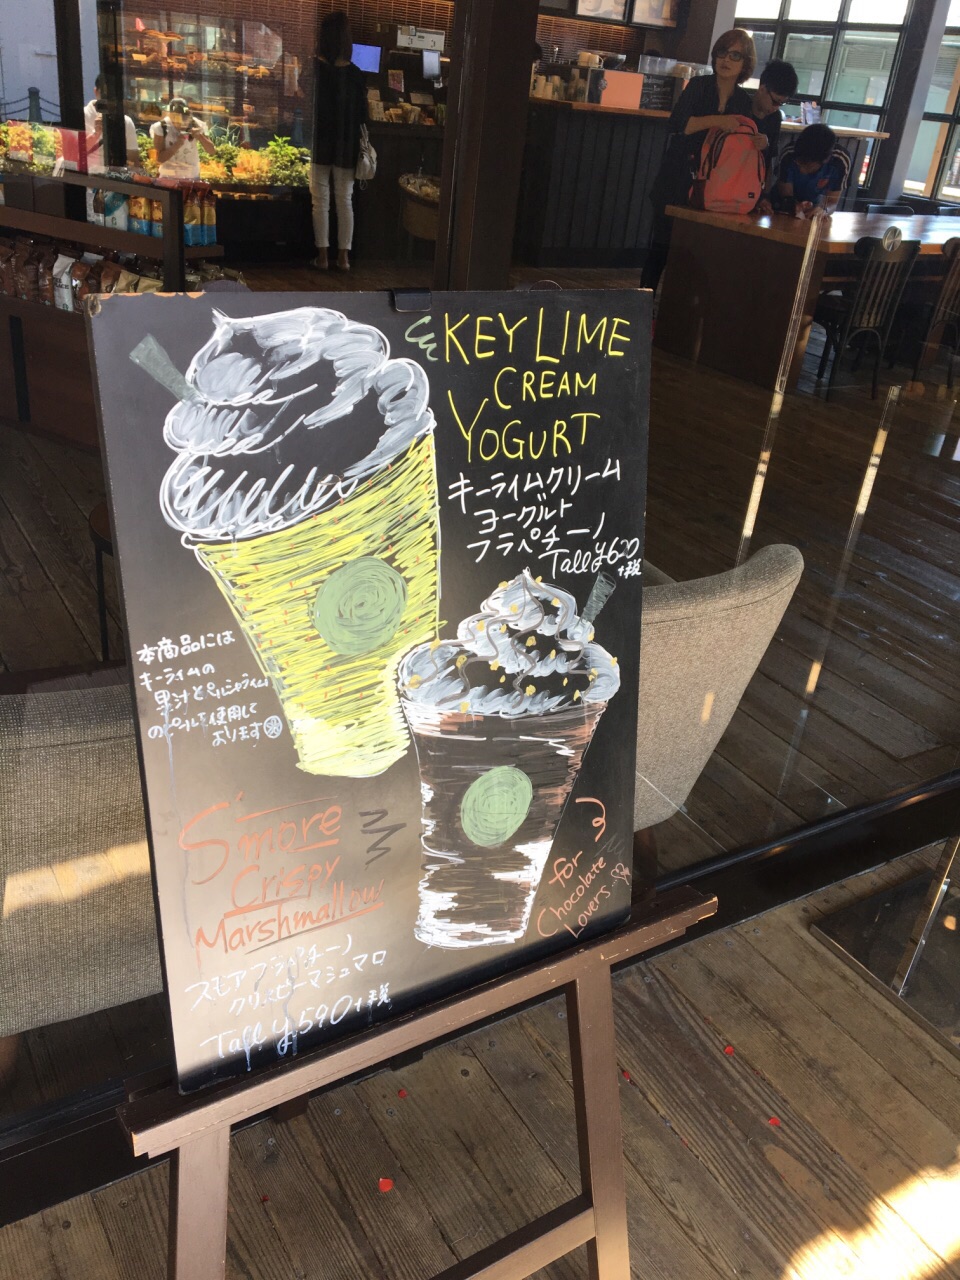 KEY LIME
CREAM
YOGURT
キーライムクリーム
ヨーグルト
フラペチーノ
Tall ¥620
+税
本商品には
キーライムの
果汁とペルシャライム
のピールを使用して
おります
S'more
Crispy
Marshmallow
スモアフラペチーノ
クリスピーマシュマロ
Tall ¥590+税
for
Chocolate
Lovers